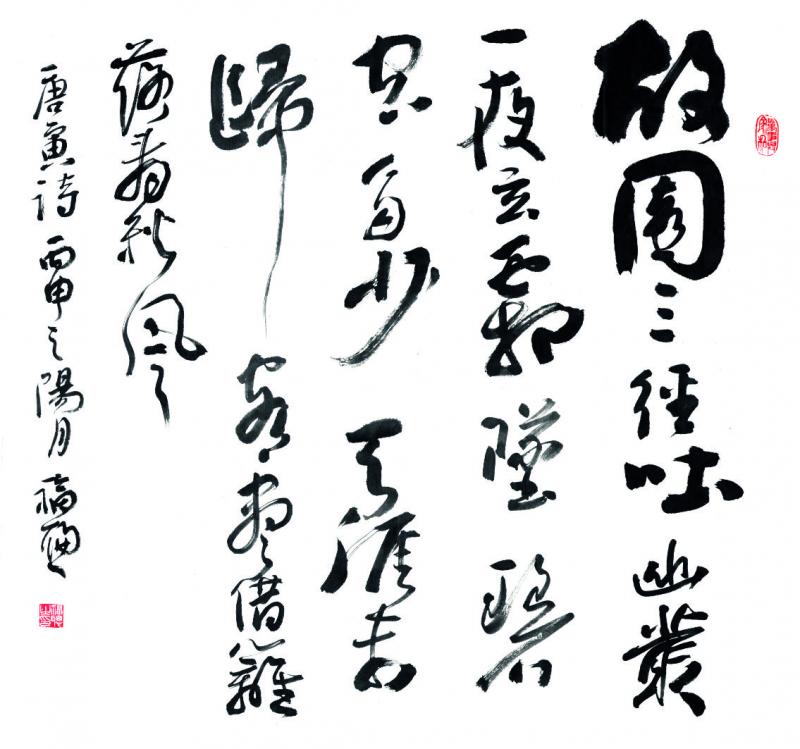 故園三徑吐幽叢
一夜玄霜墜碧
空多少天涯未
歸客盡借籬
落看秋風
唐寅詩 丙申之陽月